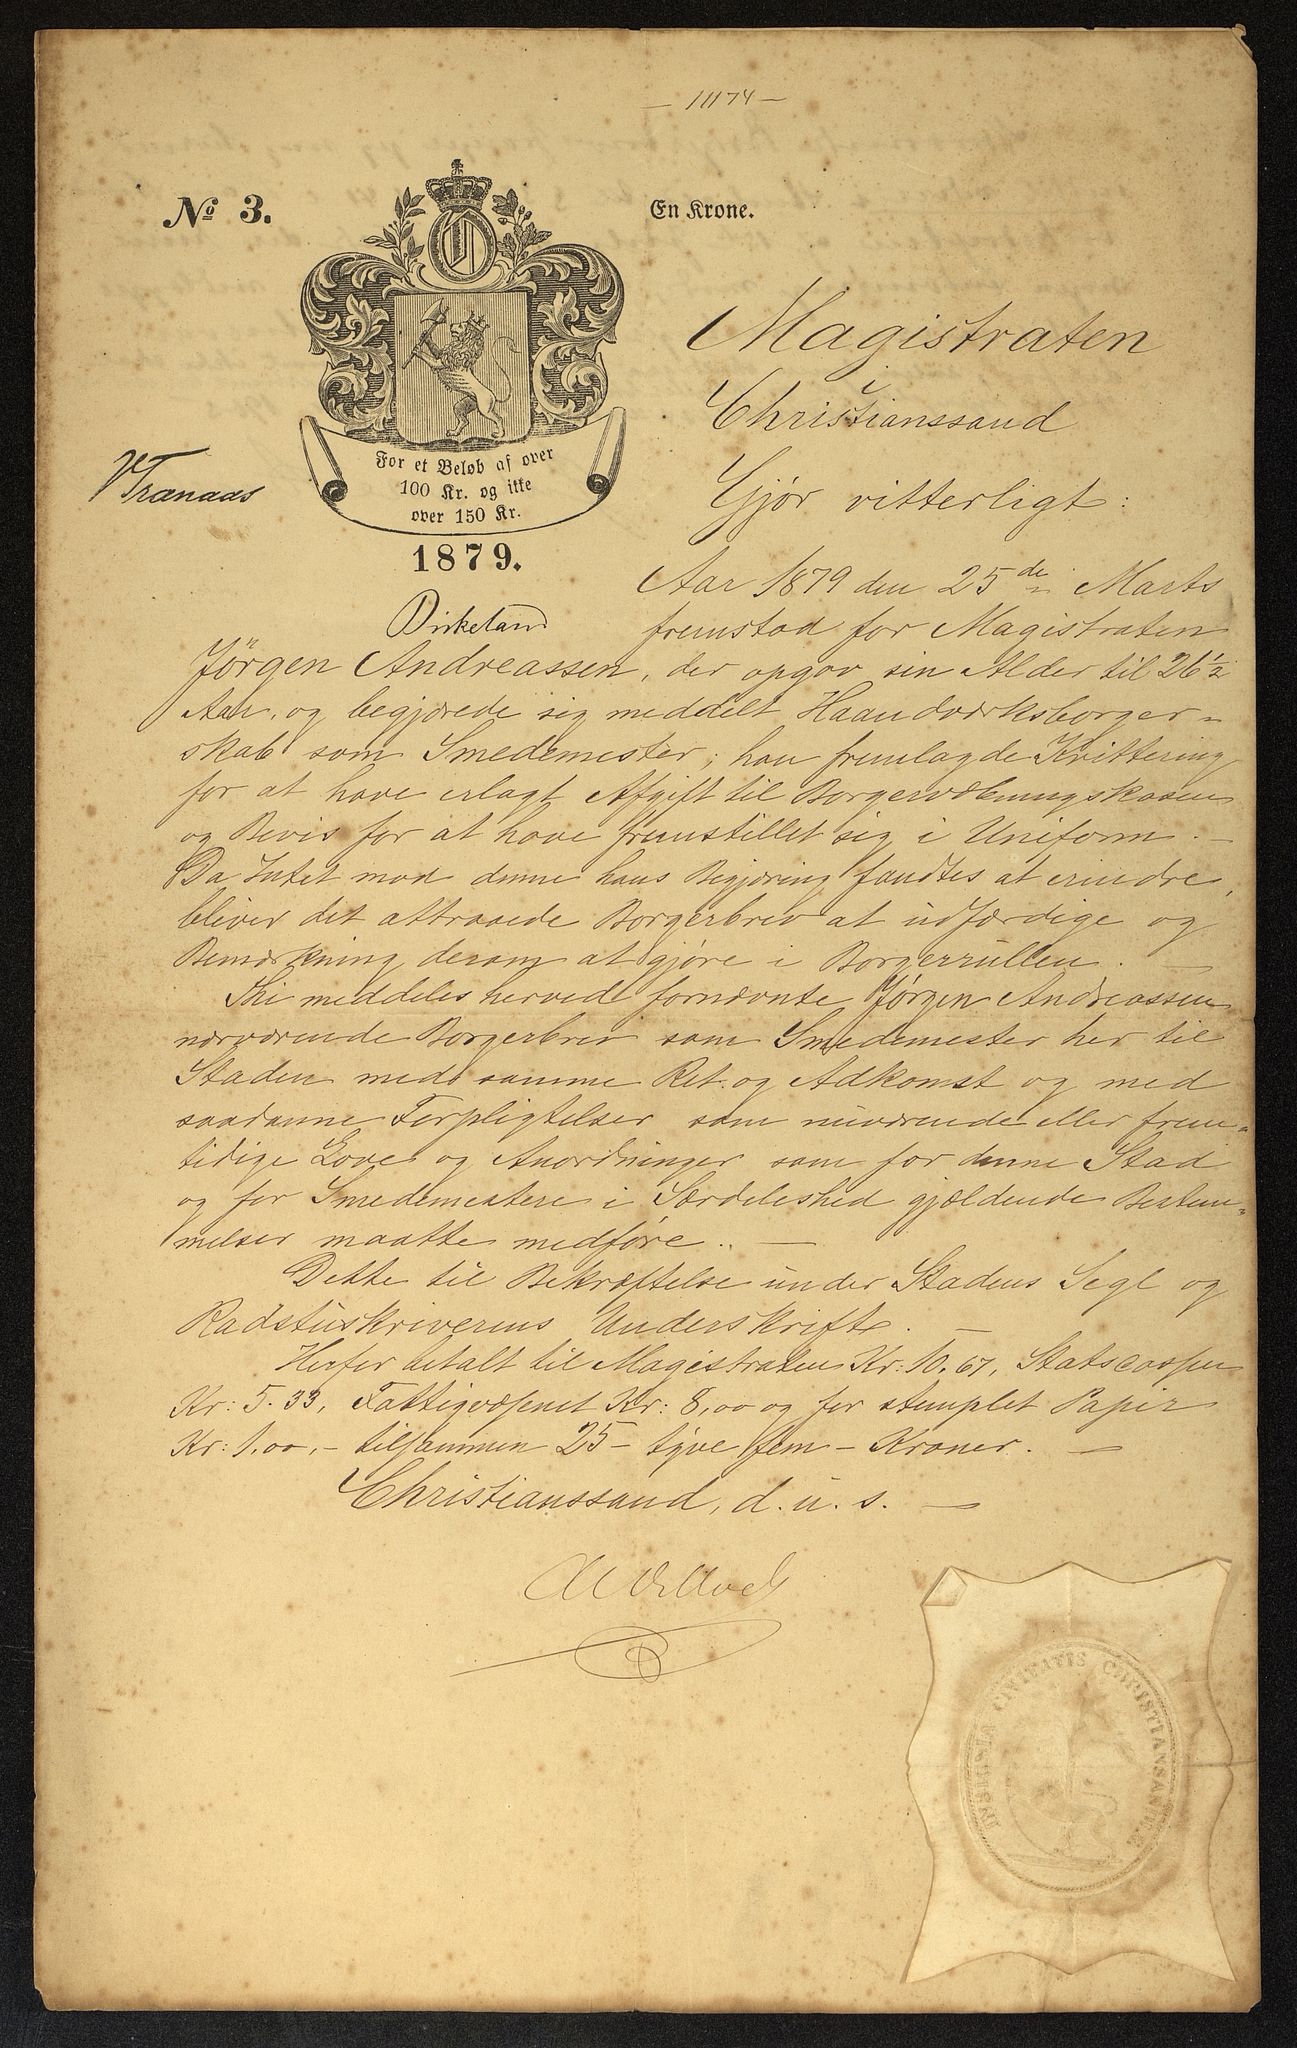 — 11174 —
No 3.
En Krone.
O
For et Beløb af over
100 Kr. og ikke
over 150 Kr.
1879.
VTranaas
Magistraten
i
Christianssand
Gjør vitterligt:
Aar 1879 den 25de Marts
Birkeland
fremstod for Magistraten
Jørgen Andreassen, der opgav sin Alder til 26 1/2
Aar, og begjærede sig meddelt Haandværksborger-
skab som Smedemester; han fremlagde Kvittering
for at have erlagt Afgift til Borgervæbningskassen
og Bevis for at have fremstillet sig i Uniform. —
Da Intet mod denne hans Begjæring fandtes at erindre,
blived det attraaede Borgerbrev at udfærdige og
Bemærkning derom at gjøre i Borgerrullen. —
Thi meddeles herved fornævnte Jørgen Andreassen
nærværende Borgerbrev som Smedemester her til
Staden med samme Ret og Adkomst og med
saadanne Forpligtelser som nuværende eller frem-
tidige Love og Anordninger som for denne Stad
og for Smedemestere i Særdeleshed gjældende Bestem-
melser maatte medføre. —
Dette til Bekræftelse under Stadens Segl og
Radstuskriverens Underskrift. —
Herfor betalt til Magistraten Kr: 10.67, Statscassen
Kr: 5.33, Fattigvæsenet Kr: 8,00 og for stemplet Papir
Kr: 1,00, - tilsammen 25 - tyve fem - Kroner. —
Christianssand, d. u. s. —
INSIGNIA CIVITATIS CHRISTIANSANDIÆ